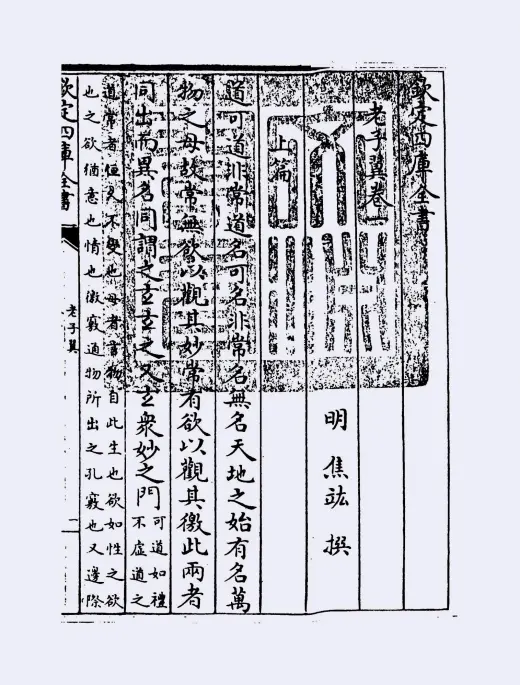 欽定四庫全書
老子翼卷一
明 焦竑 撰
上篇
道可道非常道名可名非常名無名天地之始有名萬
物之母故常無欲以觀其妙常有欲以觀其徼此兩者
同出而異名同謂之玄玄之又玄衆妙之門
可道如禮
不虚道之
道常者恒久不變也母者言物自此生也欲如性之欲
也之欲猶意也情也徼竅通物所出之孔竅也又邊際
欽定四庫全書
老子翼
一